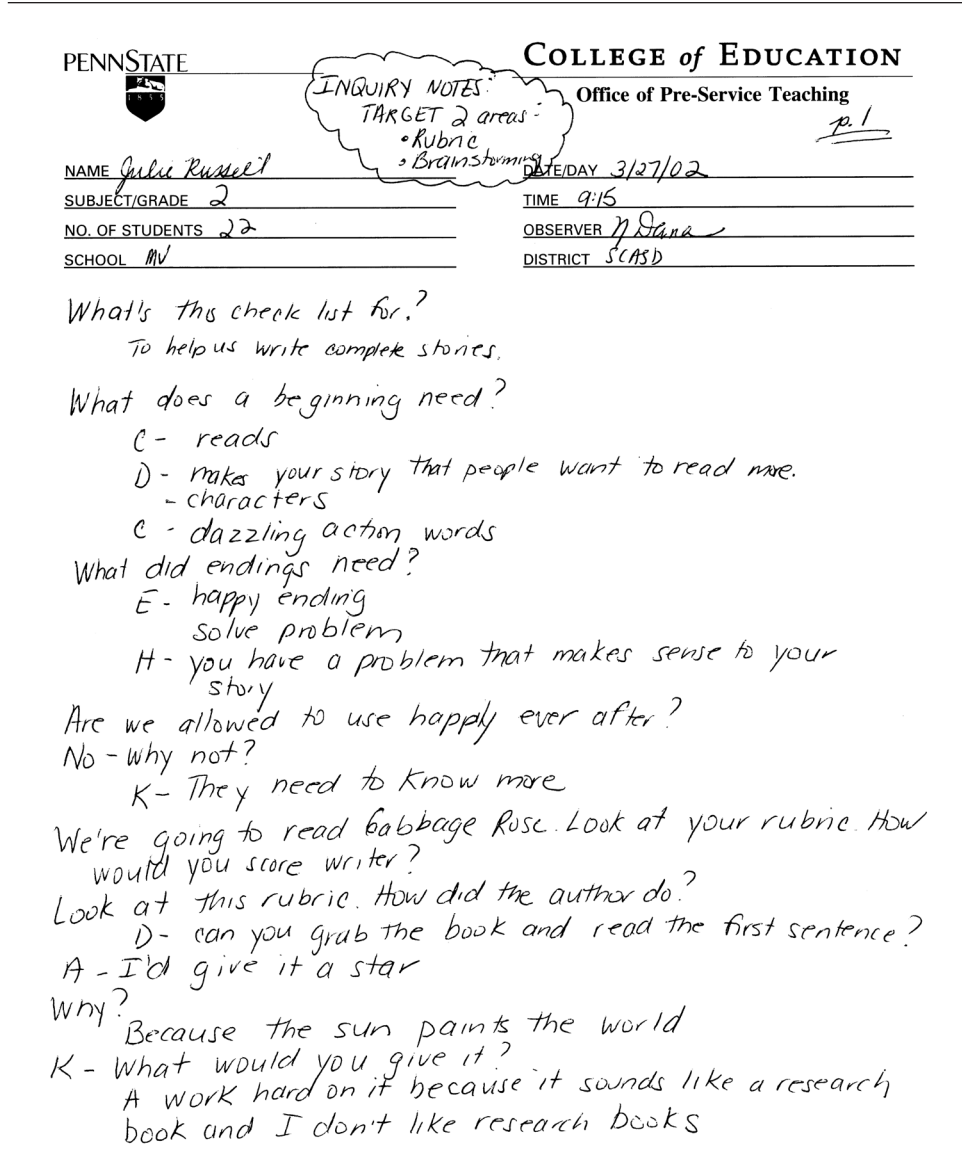 PENNSTATE
1855
COLLEGE of EDUCATION
Office of Pre-Service Teaching
p. 1
INQUIRY NOTES:
TARGET 2 areas:
• Rubric
• Brainstorming
NAME Julie Russell
DATE/DAY 3/27/02
SUBJECT/GRADE 2
TIME 9:15
NO. OF STUDENTS 22
OBSERVER N Dana
SCHOOL MV
DISTRICT SCASD
What's this check list for?
To help us write complete stories.
What does a beginning need?
C - reads
D - makes your story that people want to read more.
- characters
C - dazzling action words
What did endings need?
E - happy ending
solve problem
H - you have a problem that makes sense to your
story
Are we allowed to use happly ever after?
No - why not?
K - They need to know more
We're going to read Gabbage Rose. Look at your rubric. How
would you score writer?
Look at this rubric. How did the author do?
D - can you grab the book and read the first sentence?
A - I'd give it a star
Why?
Because the sun paints the world
K - What would you give it?
A work hard on it because it sounds like a research
book and I don't like research books